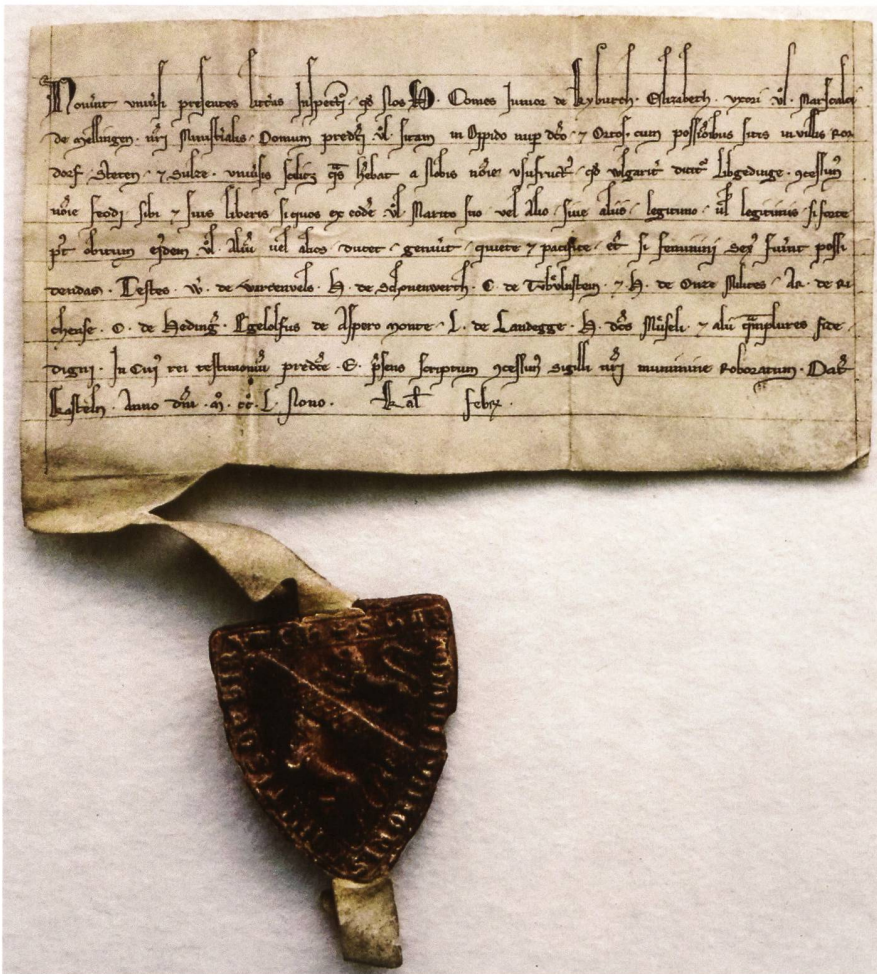 Nov̾int univ̾si presentes litt̾as Inspect̾i · qd̾ Nos H · Comes Iunior de Kyburch · Elizabeth · uxori Vͦl · Marscalci
de Mellingen · nr̾i Ministerialis · Domum predc̾i Vͦl · sitam in Oppido nup̾ dc̾o · ⁊ Ortos · cum possessio̅ibus sitis in villis Ror
dorf · Steten · ⁊ Sulze · univ̾sis scilic̾ quas h̾ebat a Nobis no̅ie ususfruct̾ · qd̾ wlgarit̾ dicit̾ Libgedinge · ꝯcessim̾
no̅ie feodi sibi ⁊ suis liberis si quos ex eodem Vͦl · Marito suo vel Alio · sive aliis · legitimo · ul̾ legitimis · si forte
p̾t obitum ej̾dem Vͦl · Aliu̅ vel alios · ducet · genuit · quiete ⁊ pacifice · et si feminini sex̾ fu̾int possi
dendas · Testes · W̾ · de wartenvels · H · de Schonenwerch · C · de Trͦbͦlnstein · ⁊ H · de Onze Milites · Ar · de Ri
chense · O · de Heding̾ · Egelolfus de Aspero monte · L · de Landegge · H · dc̾s Mu̾seli · ⁊ alii qu̅mplures fide
digni · In Cuj̾ rei testimoniu̅ predc̾e · E · p̾sens scriptum ꝯcessim̾ Sigilli nr̾i munimine Roboratum · Dat̾
Kasteln · Anno dn̅i · Mͦ · ccͦ · L · Nono · Kal̾ febr̾ ·